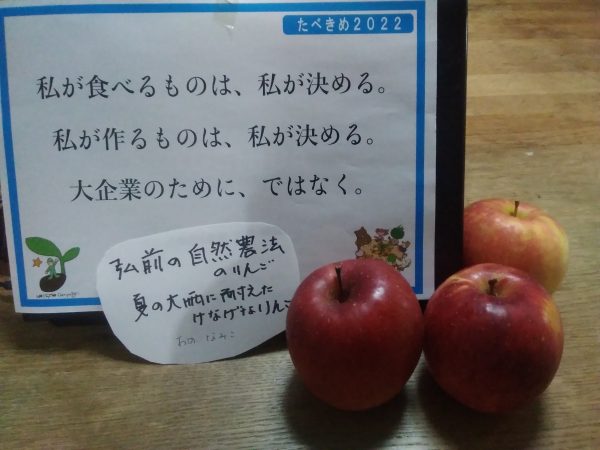 たべきめ2022
私が食べるものは、私が決める。
私が作るものは、私が決める。
大企業のために、ではなく。
弘前の自然農法
のりんご
夏の大雨に耐えた
けなげなりんご
おの なみこ